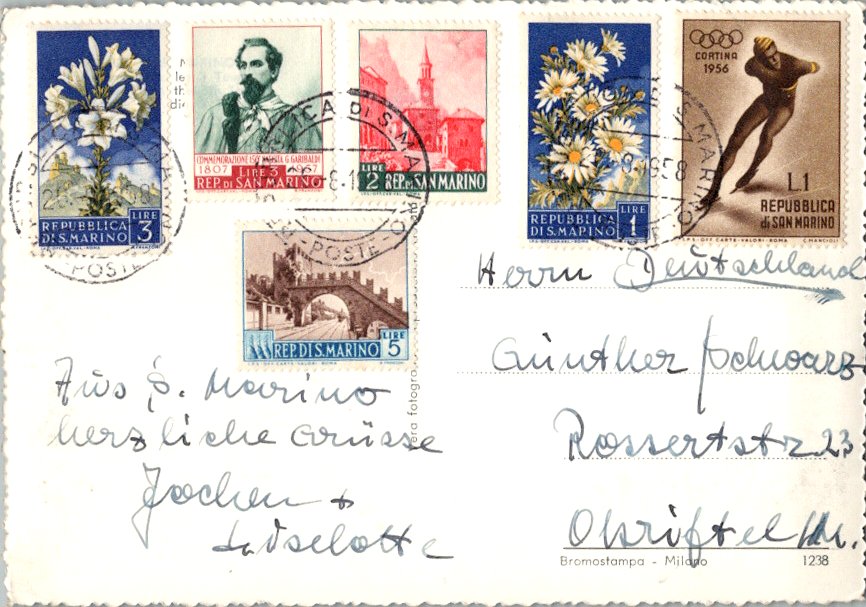 REPUBBLICA
DI S. MARINO
LIRE
3
COMMEMORAZIONE
G. GARIBALDI
1807
LIRE 3
REP. DI SAN MARINO
LIRE
2
REP. DI SAN MARINO
REPUBBLICA
DI S. MARINO
LIRE
1
CORTINA
1956
L.1
REPUBBLICA
di SAN MARINO
I.P.S. OFF. CARTE-VALORI-ROMA
REP. DI S. MARINO
LIRE
5
DI S. MA
POSTE
Aus S. Marino
herzliche Grüsse
Jochen +
Liselotte
Herrn Deutschland
Günther Schwarz
Rossertstr 23
Okriftel /M.
era fotogra
Bromostampa - Milano 1238